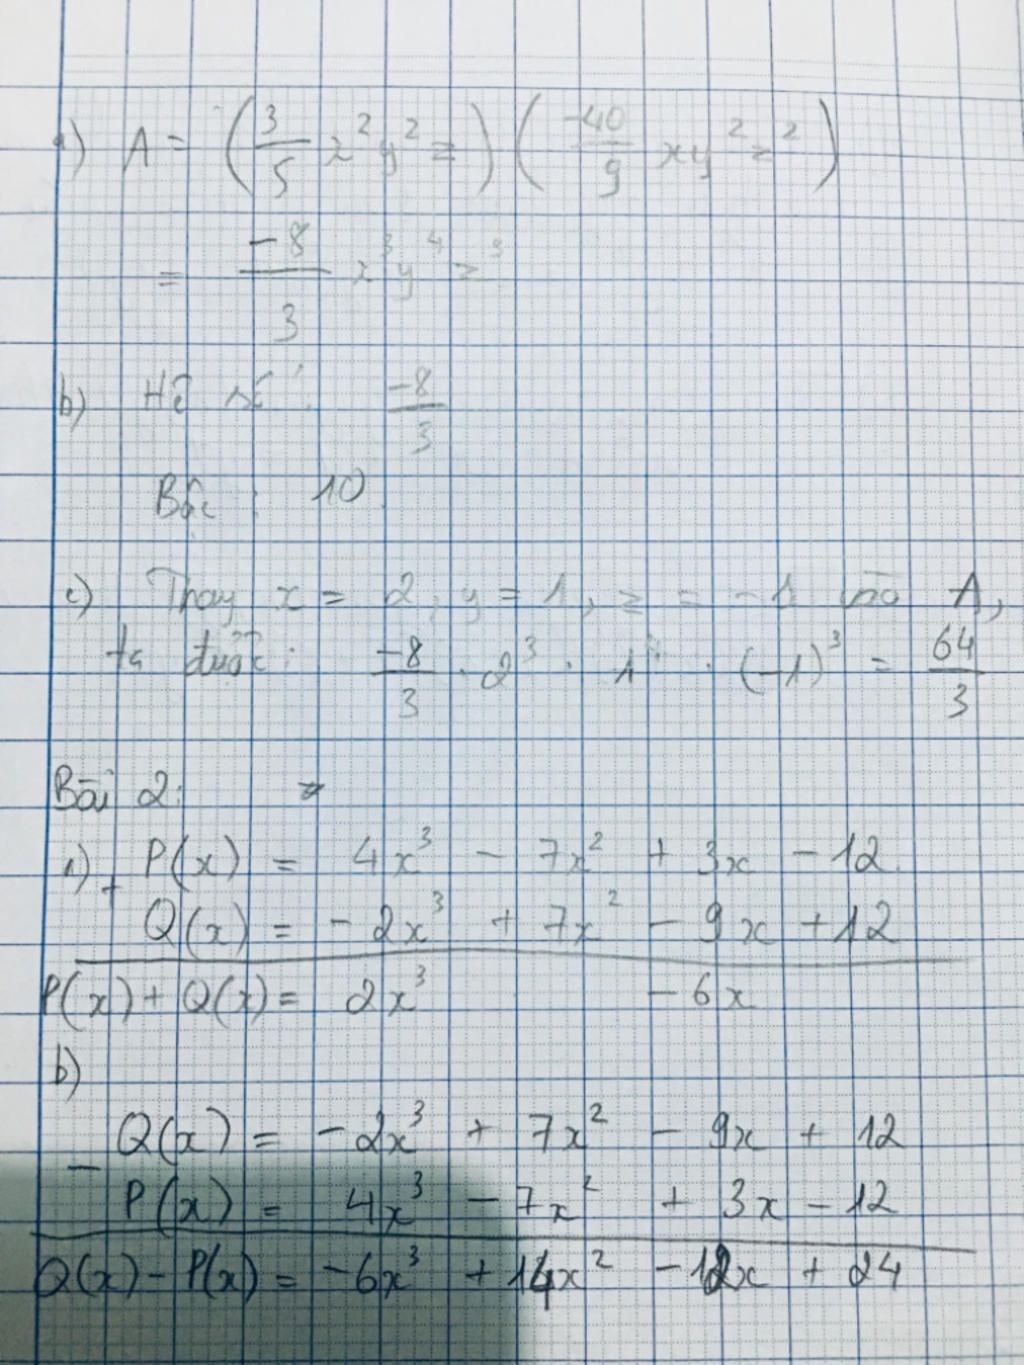 a) A = (3/5 x²y²z) (-40/9 xy²z²)
= -8/3 x³y⁴z³
b) Hệ số: -8/3
Bậc: 10
c) Thay x = 2, y = 1, z = -1 vào A,
ta được: -8/3 . 2³ . 1⁴ . (-1)³ = 64/3
Bài 2:
a) + P(x) = 4x³ - 7x² + 3x - 12
Q(x) = - 2x³ + 7x² - 9x + 12
P(x) + Q(x) = 2x³ - 6x
b)
Q(x) = - 2x³ + 7x² - 9x + 12
-
P(x) = 4x³ - 7x² + 3x - 12
Q(x) - P(x) = - 6x³ + 14x² - 12x + 24